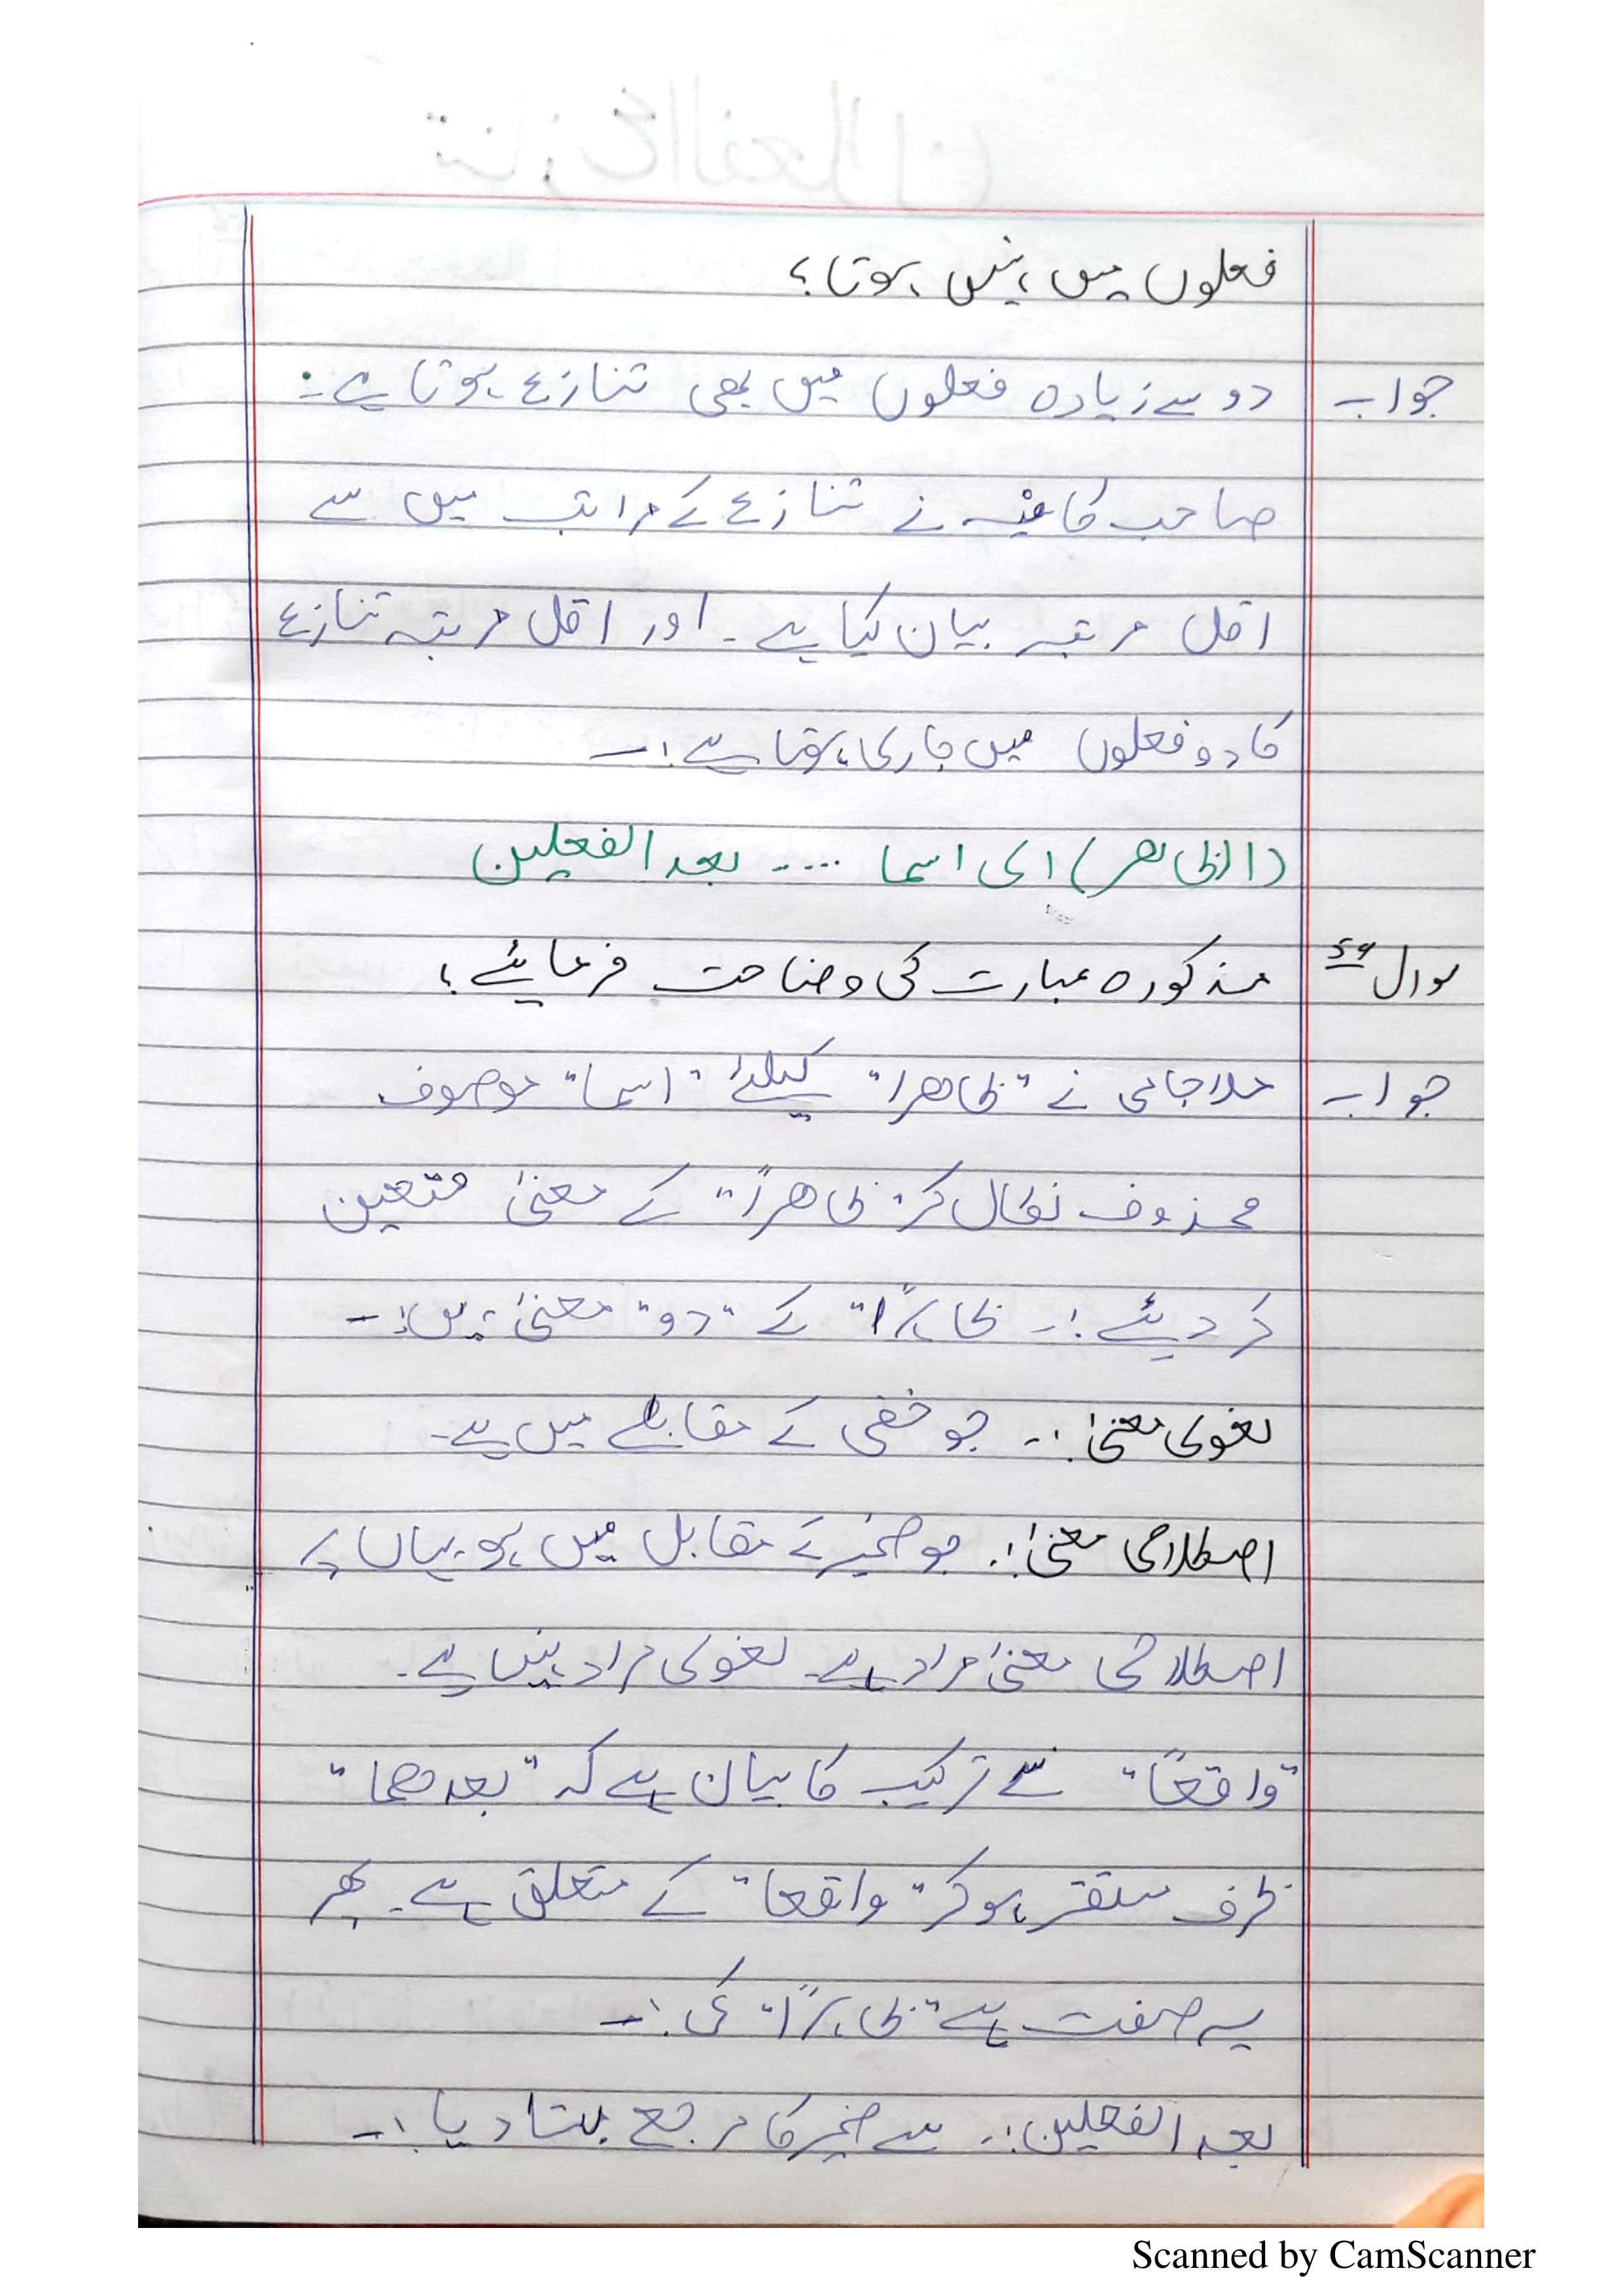 فعلوں میں نہیں ہوتا؟
جواب دو سے زیادہ فعلوں میں بھی تنازع ہوتا ہے۔
صاحب کافیہ نے تنازع کے مراتب میں سے
اقل مرتبہ بیان کیا ہے۔ اور اقل مرتبہ تنازع
کا دو فعلوں میں جاری ہوتا ہے:۔
(الظاھر) ای اسما .... بعد الفعلین
سوال ۵۹ مذکورہ عبارت کی وضاحت فرمائیے؟
جواب ملا جامی نے "ظاھرا" کیلئے "اسما" موصوف
محذوف نکال کر "ظاھراً" کے معنیٰ متعین
کر دیئے:۔ ظاہراً" کے "دو" معنیٰ ہیں:۔
لغوی معنیٰ:۔ جو خفی کے مقابلے میں ہے۔
اصطلاحی معنیٰ:۔ جو ضمیر کے مقابل میں ہو۔ یہاں پر
اصطلاحی معنیٰ مراد ہے۔ لغوی مراد نہیں ہے۔
"واقعًا" سے ترکیب کا بیان ہے کہ "بعدھما"
ظرف مستقر ہو کر "واقعا" کے متعلق ہے۔ پھر
یہ صفت ہے "ظاہراً" کی:۔
بعد الفعلین:۔ سے ضمیر کا مرجع بتا دیا:۔
Scanned by CamScanner